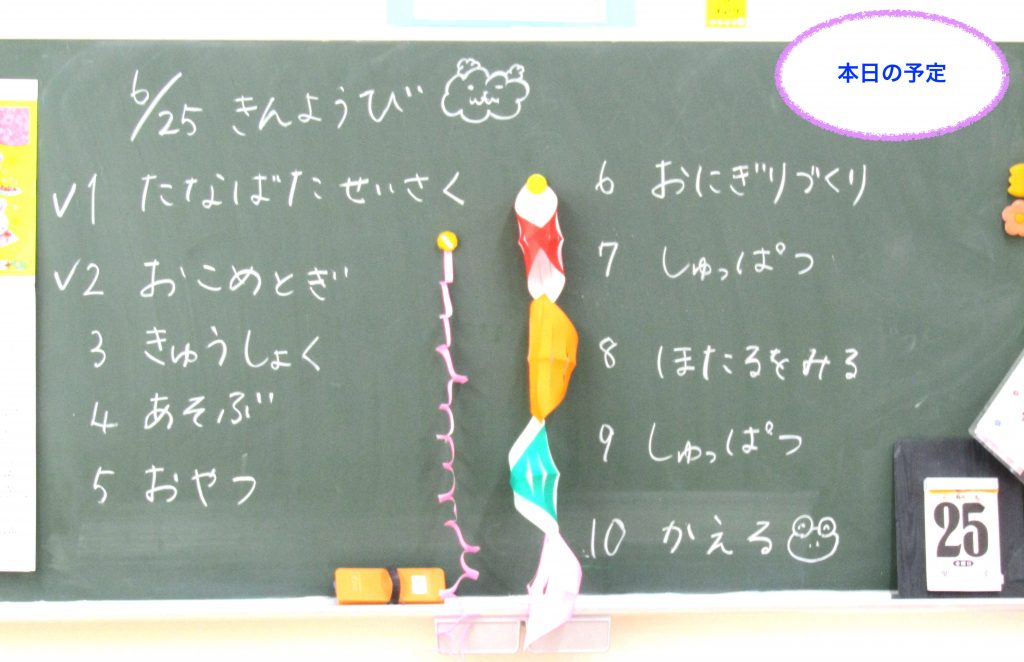 本日の予定
6/25 きんようび
✓1 たなばたせいさく
✓2 おこめとぎ
3 きゅうしょく
4 あそぶ
5 おやつ
6 おにぎりづくり
7 しゅっぱつ
8 ほたるをみる
9 しゅっぱつ
10 かえる
25